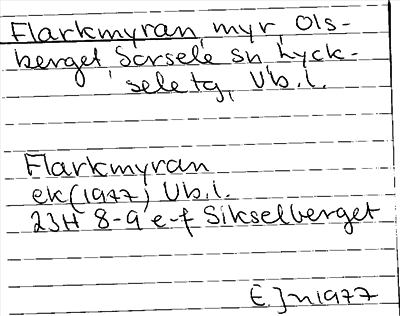 Flarkmyran, myr, Ols-
berget, Sorsele sn, Lyck-
sele tg, Vb.l.
Flarkmyran
ek (1977) Vb.l.
23H 8-9 e-f Sikselberget
E.Jn 1977